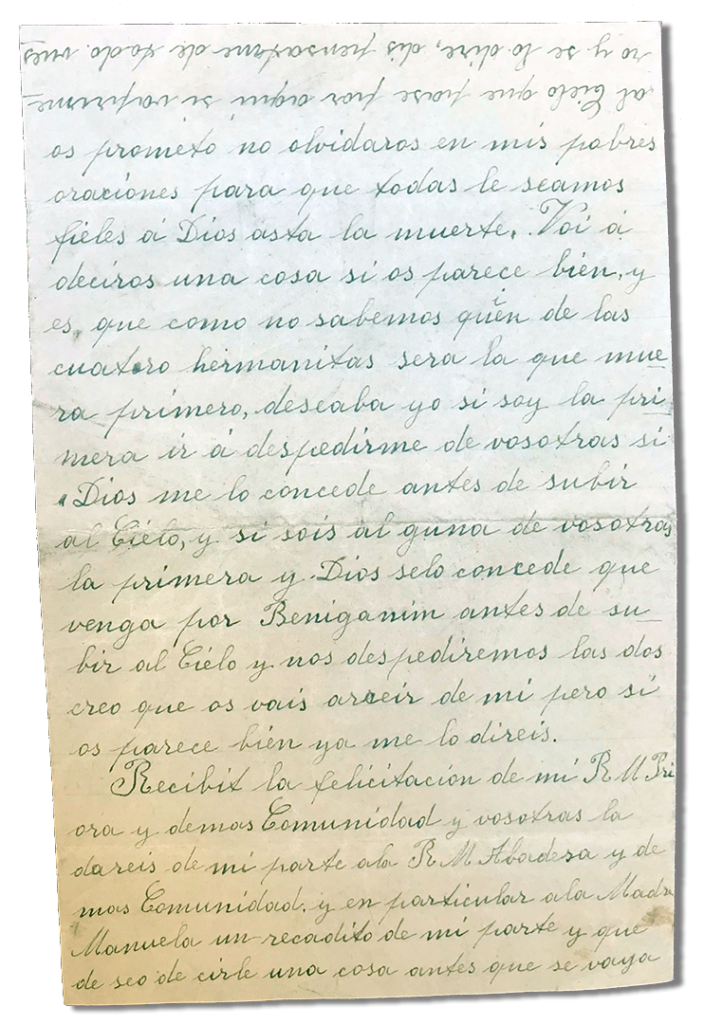 os prometo no olvidaros en mis pobres
oraciones para que todas le seamos
fieles á Dios asta la muerte. Voi á
deciros una cosa si os parece bien, y
es, que como no sabemos quen de las
cuatro hermanitas sera la que mue
ra primero, deseaba yo si soy la pri
mera ir á despedirme de vosotras si
Dios me lo concede antes de subir
al Cielo, y si sois al guna de vosotras
la primera y Dios selo concede que
venga por Beniganim antes de su
bir al Cielo y nos despediremos las dos
creo que os vais arreir de mi pero si
os parece bien ya me lo direis.
Recibit la felicitacion de mi R M Pri
ora y demas Comunidad y vosotras la
dareis de mi parte ala R M Abadesa y de
mas Comunidad. y en particular ala Madre
Manuela un recadito de mi parte y que
de seo de cirle una cosa antes que se vaya
al Cielo que pase por aqui si vaprime-
ro y se lo dire, dis pensarme de todo. vues